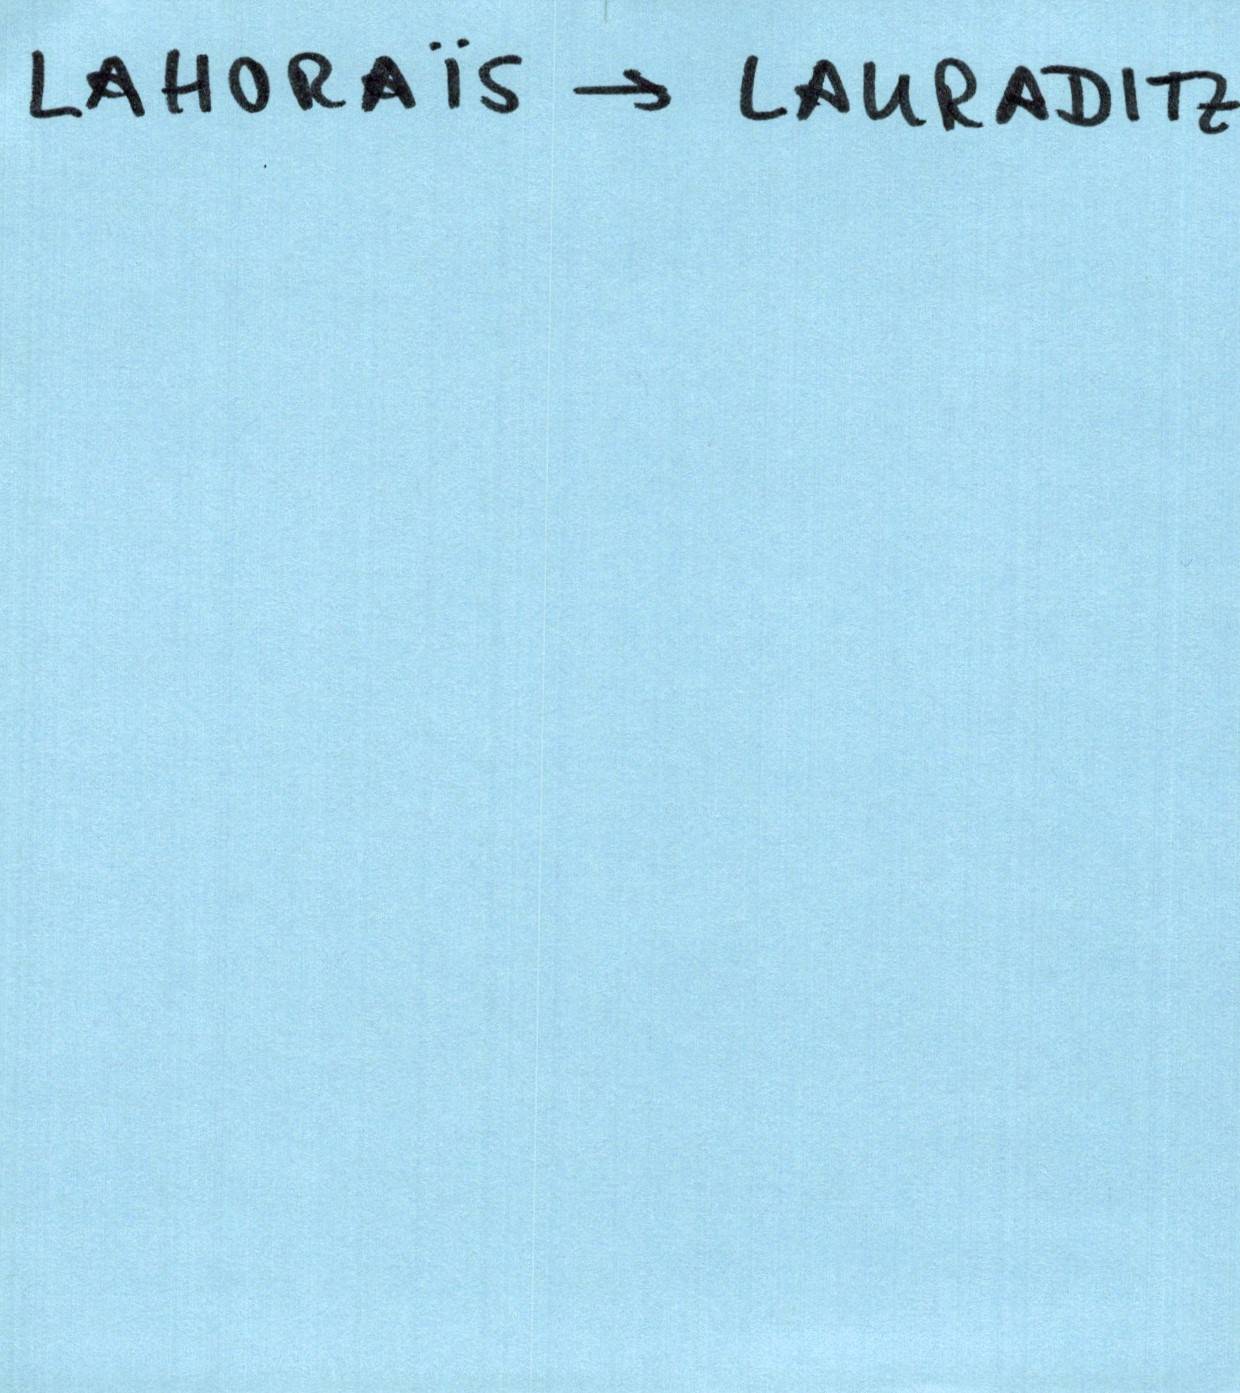 LAHORAÏS → LAURADITZ